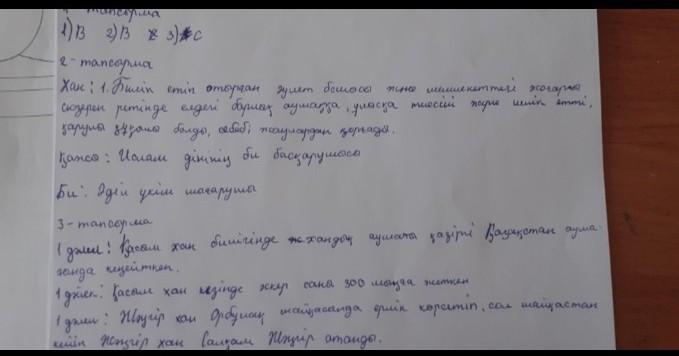 1 - тапсырма
1) В 2) В 3) С
2 - тапсырма
Хан: 1. Билік етіп отырған әулет басшысы және мемлекеттегі жоғарғы
ретінде елдегі барлық аумаққа, ұлысқа тиесілі жерге иелік етті,
қарулы құқылы болды, себебі жаулардан қорғады.
Қапсы: Ислам дінінің би басқарушысы
Би: Әділ үкім шығарушы
3 - тапсырма
1 дәлел: Қасым хан билігінде хандық аумағы қазіргі Қазақстан аума-
ғында кеңейткен.
1 дәлел: Қасым хан кезінде әскер саны 300 мыңға жеткен
1 дәлел: Жәңгір хан Орбұлақ шайқасында ерлік көрсетіп, сол шайқастан
кейін Жәңгір хан Салқам Жәңгір атанды.